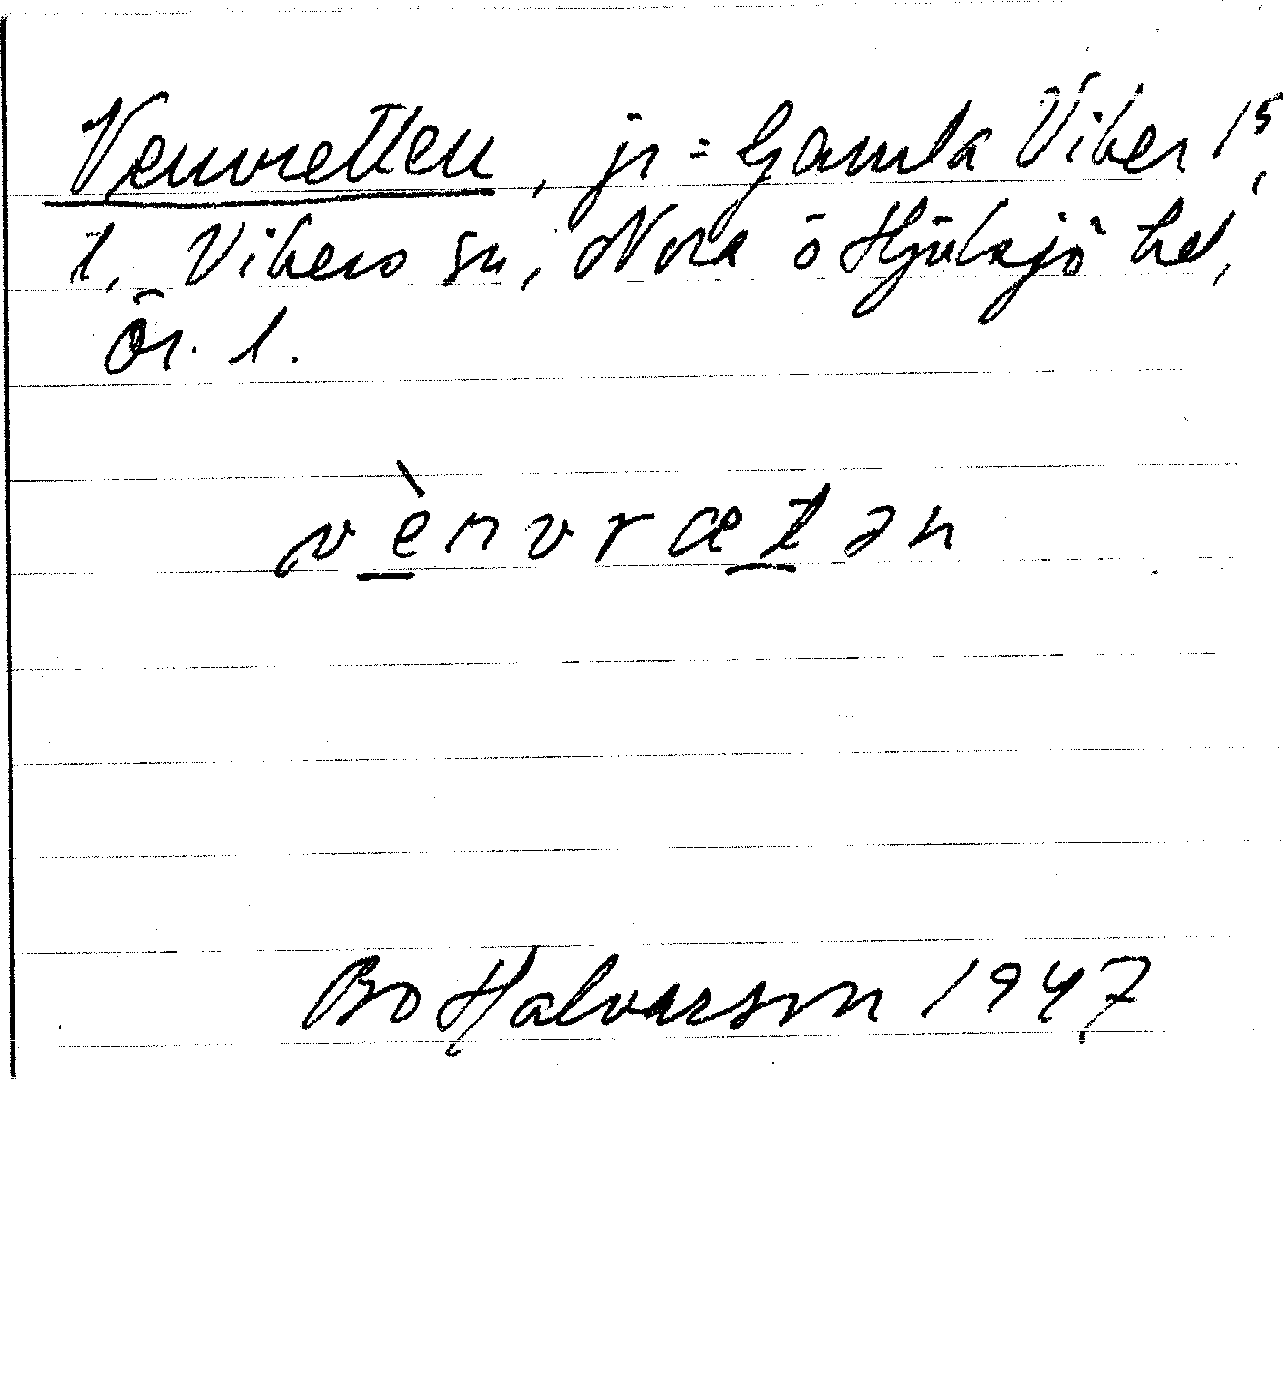 Venvretten, jr = Gamla Viker 1⁵,
t. Vikers sn, Nora o Hjulsjö hd,
Ör. l.
vènvrætən
Bo Halvarson 1947